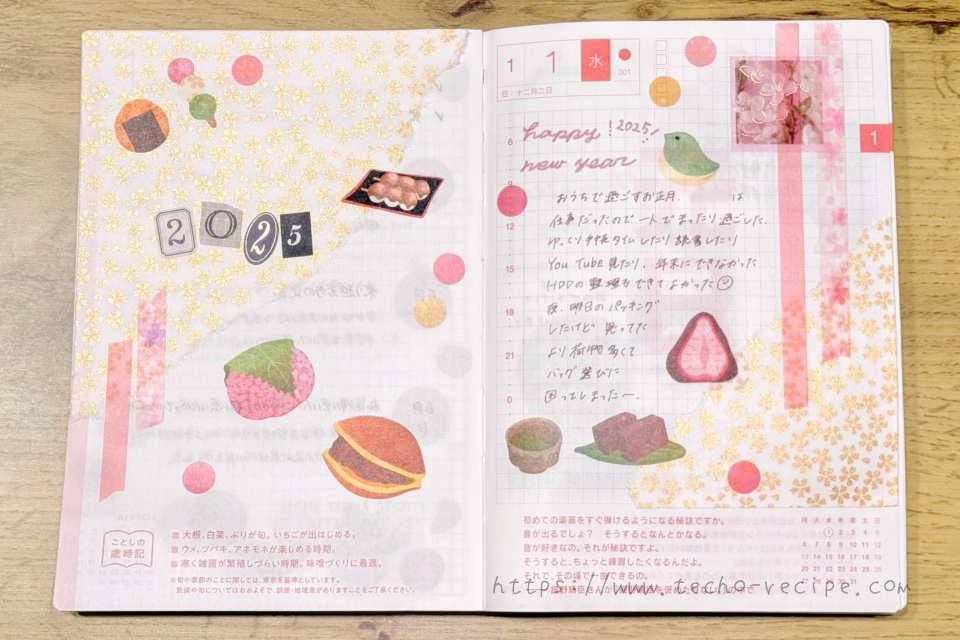 2025
ことしの
歳時記
■ 大根、白菜、ぶりが旬。いちごが出はじめる。
■ ウメ、ツバキ、アネモネが楽しめる時期。
■ 寒く雑菌が繁殖しづらい時期。味噌づくりに最適。
※旬や季節のことに関しては、東京を基準としています。
気候や旬についてはおおよそで、誤差・地域差がありますことをご了承ください。
1 1 水
001
旧:十二月二日
1
happy 2025!
new year
6
9
12
15
18
21
0
おうちで過ごすお正月。 は
仕事だったので ートでまったり過ごした。
ゆっくり手帳タイムしたり読書したり
YouTube見たり、年末にできなかった
HDDの整理もできてよかった
夜、明日のパッキング
したけど 思ってた
より荷物多くて
バッグ選びに
困ってしまったー。
初めての楽器をすぐ弾けるようになる秘訣ですか。
音が出るでしょ? そうするとなんとかなる。
音が好きなの。それが秘訣ですよ。
そうすると、ちょっと練習したくなるんだよ。
それで、その場で一曲できるの。
月 火 水 木 金 土 日
1 2 3 4 5
6 7 8 9 10 11 12
13 14 15 16 17 18 19
20 21 22 23 24 25 26
27 28 29 30 31
https://www.techo-recipe.com